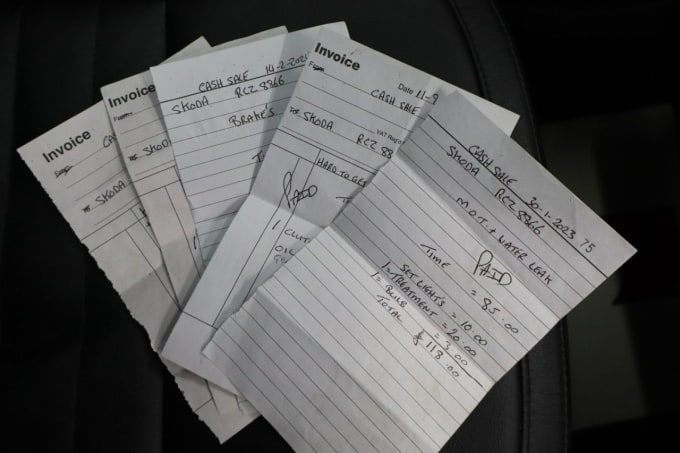 Invoice
From
CA
For SKODA
Invoice
From
CA
For SKODA
1
CASH SALE 14-2-202
SKODA RCZ 8866
BRAKE'S
Invoice
From
Date 11-9
CASH SALE
VAT Reg
For SKODA RCZ 88
HARD TO GE
PAID
1 CLUT
OIL
CASH SALE 30-1-2023 75
SKODA RCZ 8866
M.O.T. + WATER LEAK
PAID
TIME = 85.00
SET LIGHTS = 10.00
1 = TREATMENT = 20.00
1 = BULB = 3.00
TOTAL £118.00